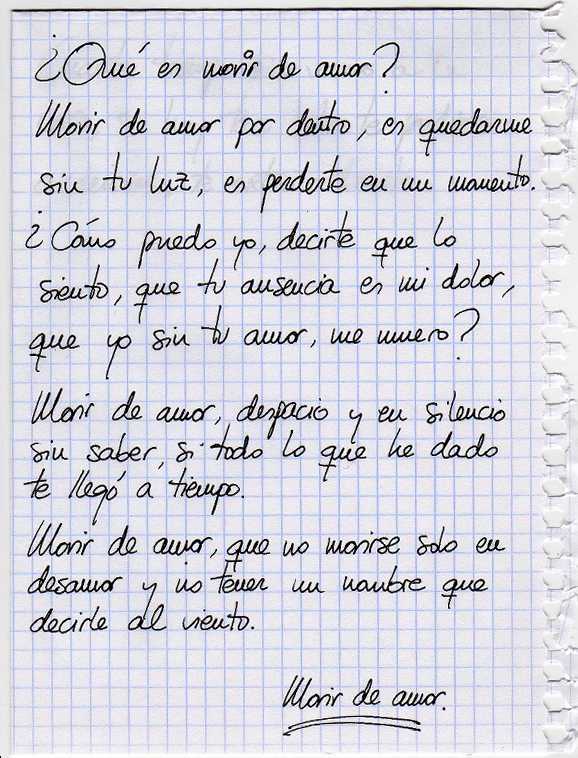 ¿Qué es morir de amor?
Morir de amor por dentro, es quedarme
sin tu luz, es perderte en un momento.
¿Cómo puedo yo, decirte que lo
siento, que tu ausencia es mi dolor,
que yo sin tu amor, me muero?
Morir de amor, despacio y en silencio
sin saber, si todo lo que he dado
te llegó a tiempo.
Morir de amor, que no morirse solo en
desamor y no tener un nombre que
decirle al viento.
Morir de amor.